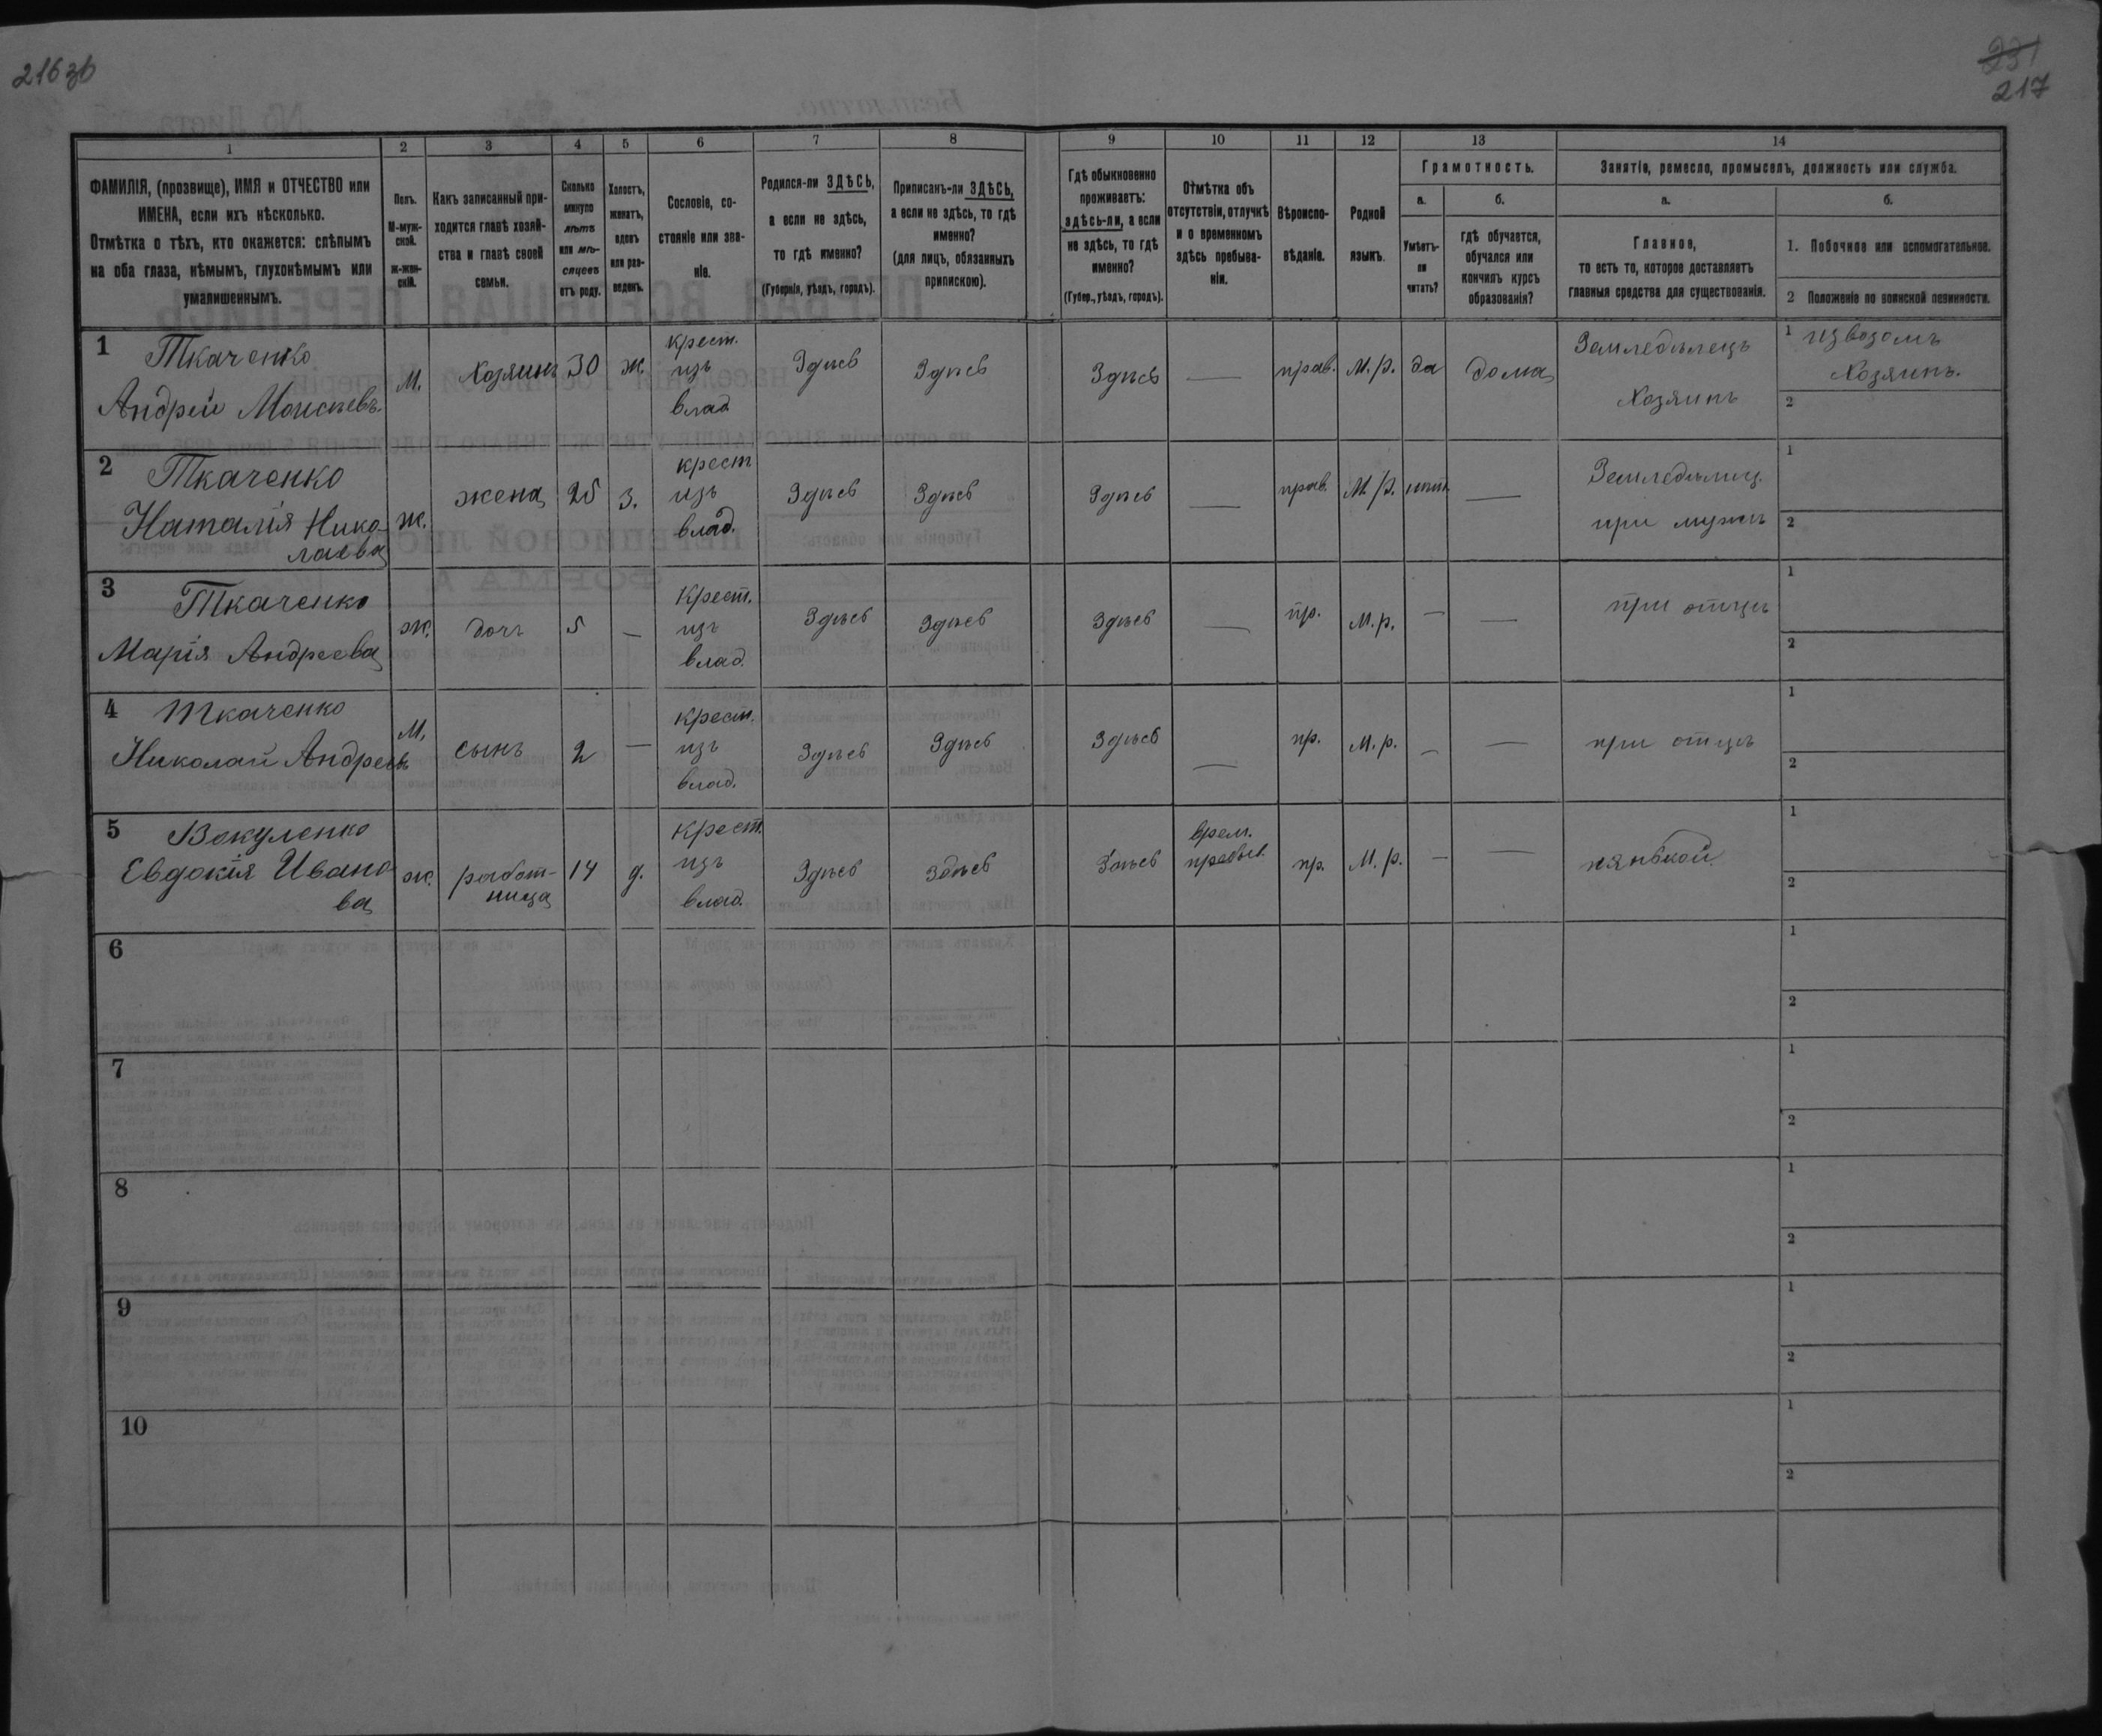 216 зв
231
217
1
2
3
4
5
6
7
8
9
10
11
12
13
14
ФАМИЛІЯ, (прозвище), ИМЯ и ОТЧЕСТВО или
ИМЕНА, если ихъ нѣсколько.
Отмѣтка о тѣхъ, кто окажется: слѣпымъ
на оба глаза, нѣмымъ, глухонѣмымъ или
умалишеннымъ.
Полъ.
М-муж-
ской.
ж-жен-
скій.
Какъ записанный при-
ходится главѣ хозяй-
ства и главѣ своей
семьи.
Сколько
минуло
лѣтъ
или мѣ-
сяцевъ
отъ роду.
Холостъ,
женатъ,
вдовъ
или раз-
веденъ.
Сословіе, со-
стояніе или зва-
ніе.
Родился-ли ЗДѢСЬ,
а если не здѣсь,
то гдѣ именно?
(Губернія, уѣздъ, городъ).
Приписанъ-ли ЗДѢСЬ,
а если не здѣсь, то гдѣ
именно?
(для лицъ, обязанныхъ
припискою).
Гдѣ обыкновенно
проживаетъ:
здѣсь-ли, а если
не здѣсь, то гдѣ
именно?
(Губер., уѣздъ, городъ).
Отмѣтка объ
отсутствіи, отлучкѣ
и о временномъ
здѣсь пребыва-
ніи.
Вѣроиспо-
вѣданіе.
Родной
языкъ.
Грамотность.
а.
Умѣетъ-
ли
читать?
б.
гдѣ обучается,
обучался или
кончилъ курсъ
образованія?
Занятіе, ремесло, промыселъ, должность или служба.
а.
Главное,
то есть то, которое доставляетъ
главныя средства для существованія.
б.
1. Побочное или вспомогательное.
2 Положеніе по воинской повинности.
1 Ткаченко
Андрей Моисеевъ.
М.
Хозяинъ
30
ж.
крест.
изъ
влад.
Здѣсь
Здѣсь
Здѣсь
—
прав.
М.р.
да
дома
Земледѣлецъ
Хозяинъ
1 извозомъ
Хозяинъ.
2
2 Ткаченко
Наталія Нико-
лаева
ж.
жена
25
з.
крест
изъ
влад.
Здѣсь
Здѣсь
Здѣсь
—
прав.
М.р.
—
Земледѣлец.
при мужѣ
1
2
3 Ткаченко
Марія Андреева
ж.
дочь
5
—
Крест.
изъ
влад.
Здѣсь
Здѣсь
Здѣсь
—
пр.
М.р.
—
—
при отцѣ
1
2
4 Ткаченко
Николай Андреевъ
М.
сынъ
2
—
крест.
изъ
влад.
Здѣсь
Здѣсь
Здѣсь
—
пр.
М.р.
—
—
при отцѣ
1
2
5 Вакуленко
Евдокія Ивано
ва
ж.
работ-
ница
14
д.
Крест.
изъ
влад.
Здѣсь
Здѣсь
Здѣсь
врем.
пребыв.
пр.
М.р.
—
—
нянькой.
1
2
6
1
2
7
1
2
8
1
2
9
1
2
10
1
2